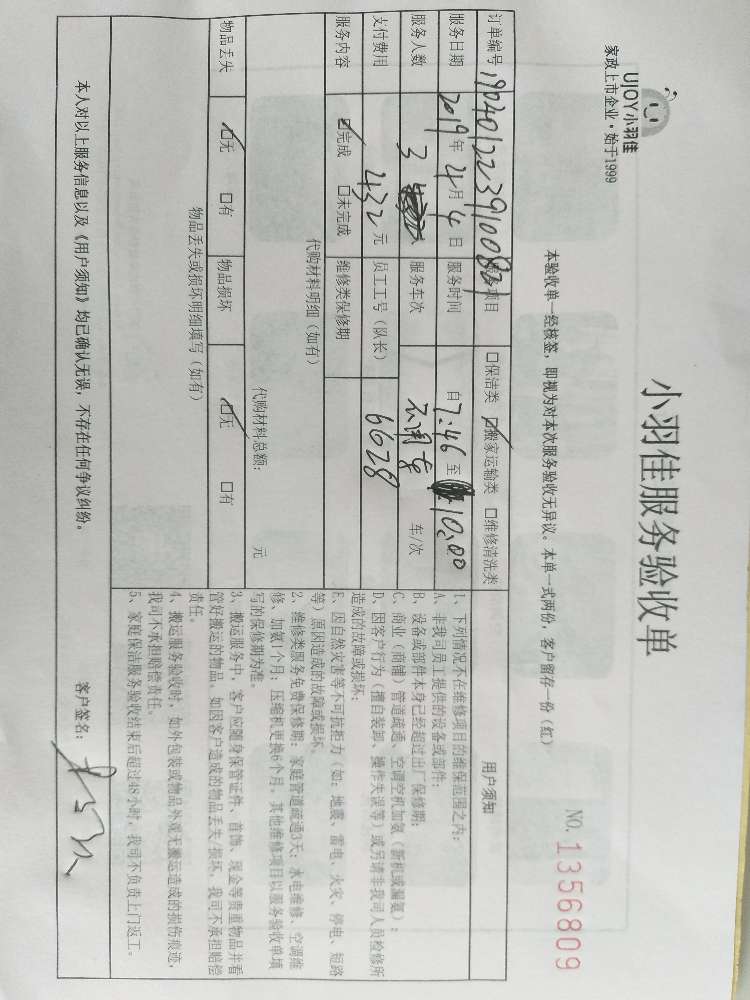 UJOY小羽佳
家政上市企业·始于1999
小羽佳服务验收单
NO. 1356809
本验收单一经核签，即视为对本次服务验收无异议。本单一式两份，客户留存一份（红）
订单编号 19040122391008
服务项目 □保洁类 ☑搬家运输类 □维修清洗类
服务日期 2019年4月4日 服务时间 自7:46至10:00
服务人数 3 人 服务车次 车/次
支付费用 432元 员工工号（队长） 6628
服务内容 ☑完成 □未完成 维修类保修期
代购材料明细（如有）
代购材料总额： 元
物品丢失 ☑无 □有 物品损坏 ☑无 □有
物品丢失或损坏明细填写（如有）
用户须知
1、下列情况不在维修项目的维保范围之内：
A、非我司员工提供的设备或部件；
B、设备或部件本身已经超过出厂保修期；
C、商业（商铺）管道疏通、空调空机加氨（新机或漏氨）；
D、因客户行为（擅自装卸、操作失误等）或另请非我司人员检修所
造成的故障或损坏；
E、因自然灾害等不可抗拒力（如：地震、雷电、火灾、停电、短路
等）原因造成的故障或损坏。
2、维修类服务免费保修期：家庭管道疏通3天；水电维修、空调维
修、加氨1个月；压缩机更换6个月，其他维修项目以服务验收单填
写的保修期为准。
3、搬运服务中，客户应随身保管证件、首饰、现金等贵重物品并看
管好搬运的物品，如因客户造成的物品丢失/损坏，我司不承担赔偿
责任。
4、搬运服务验收时，如外包装或物品外观无搬运造成的损伤痕迹，
我司不承担赔偿责任。
5、家庭保洁服务验收结束后超过48小时，我司不负责上门返工。
本人对以上服务信息以及《用户须知》均已确认无误，不存在任何争议纠纷。 客户签名：